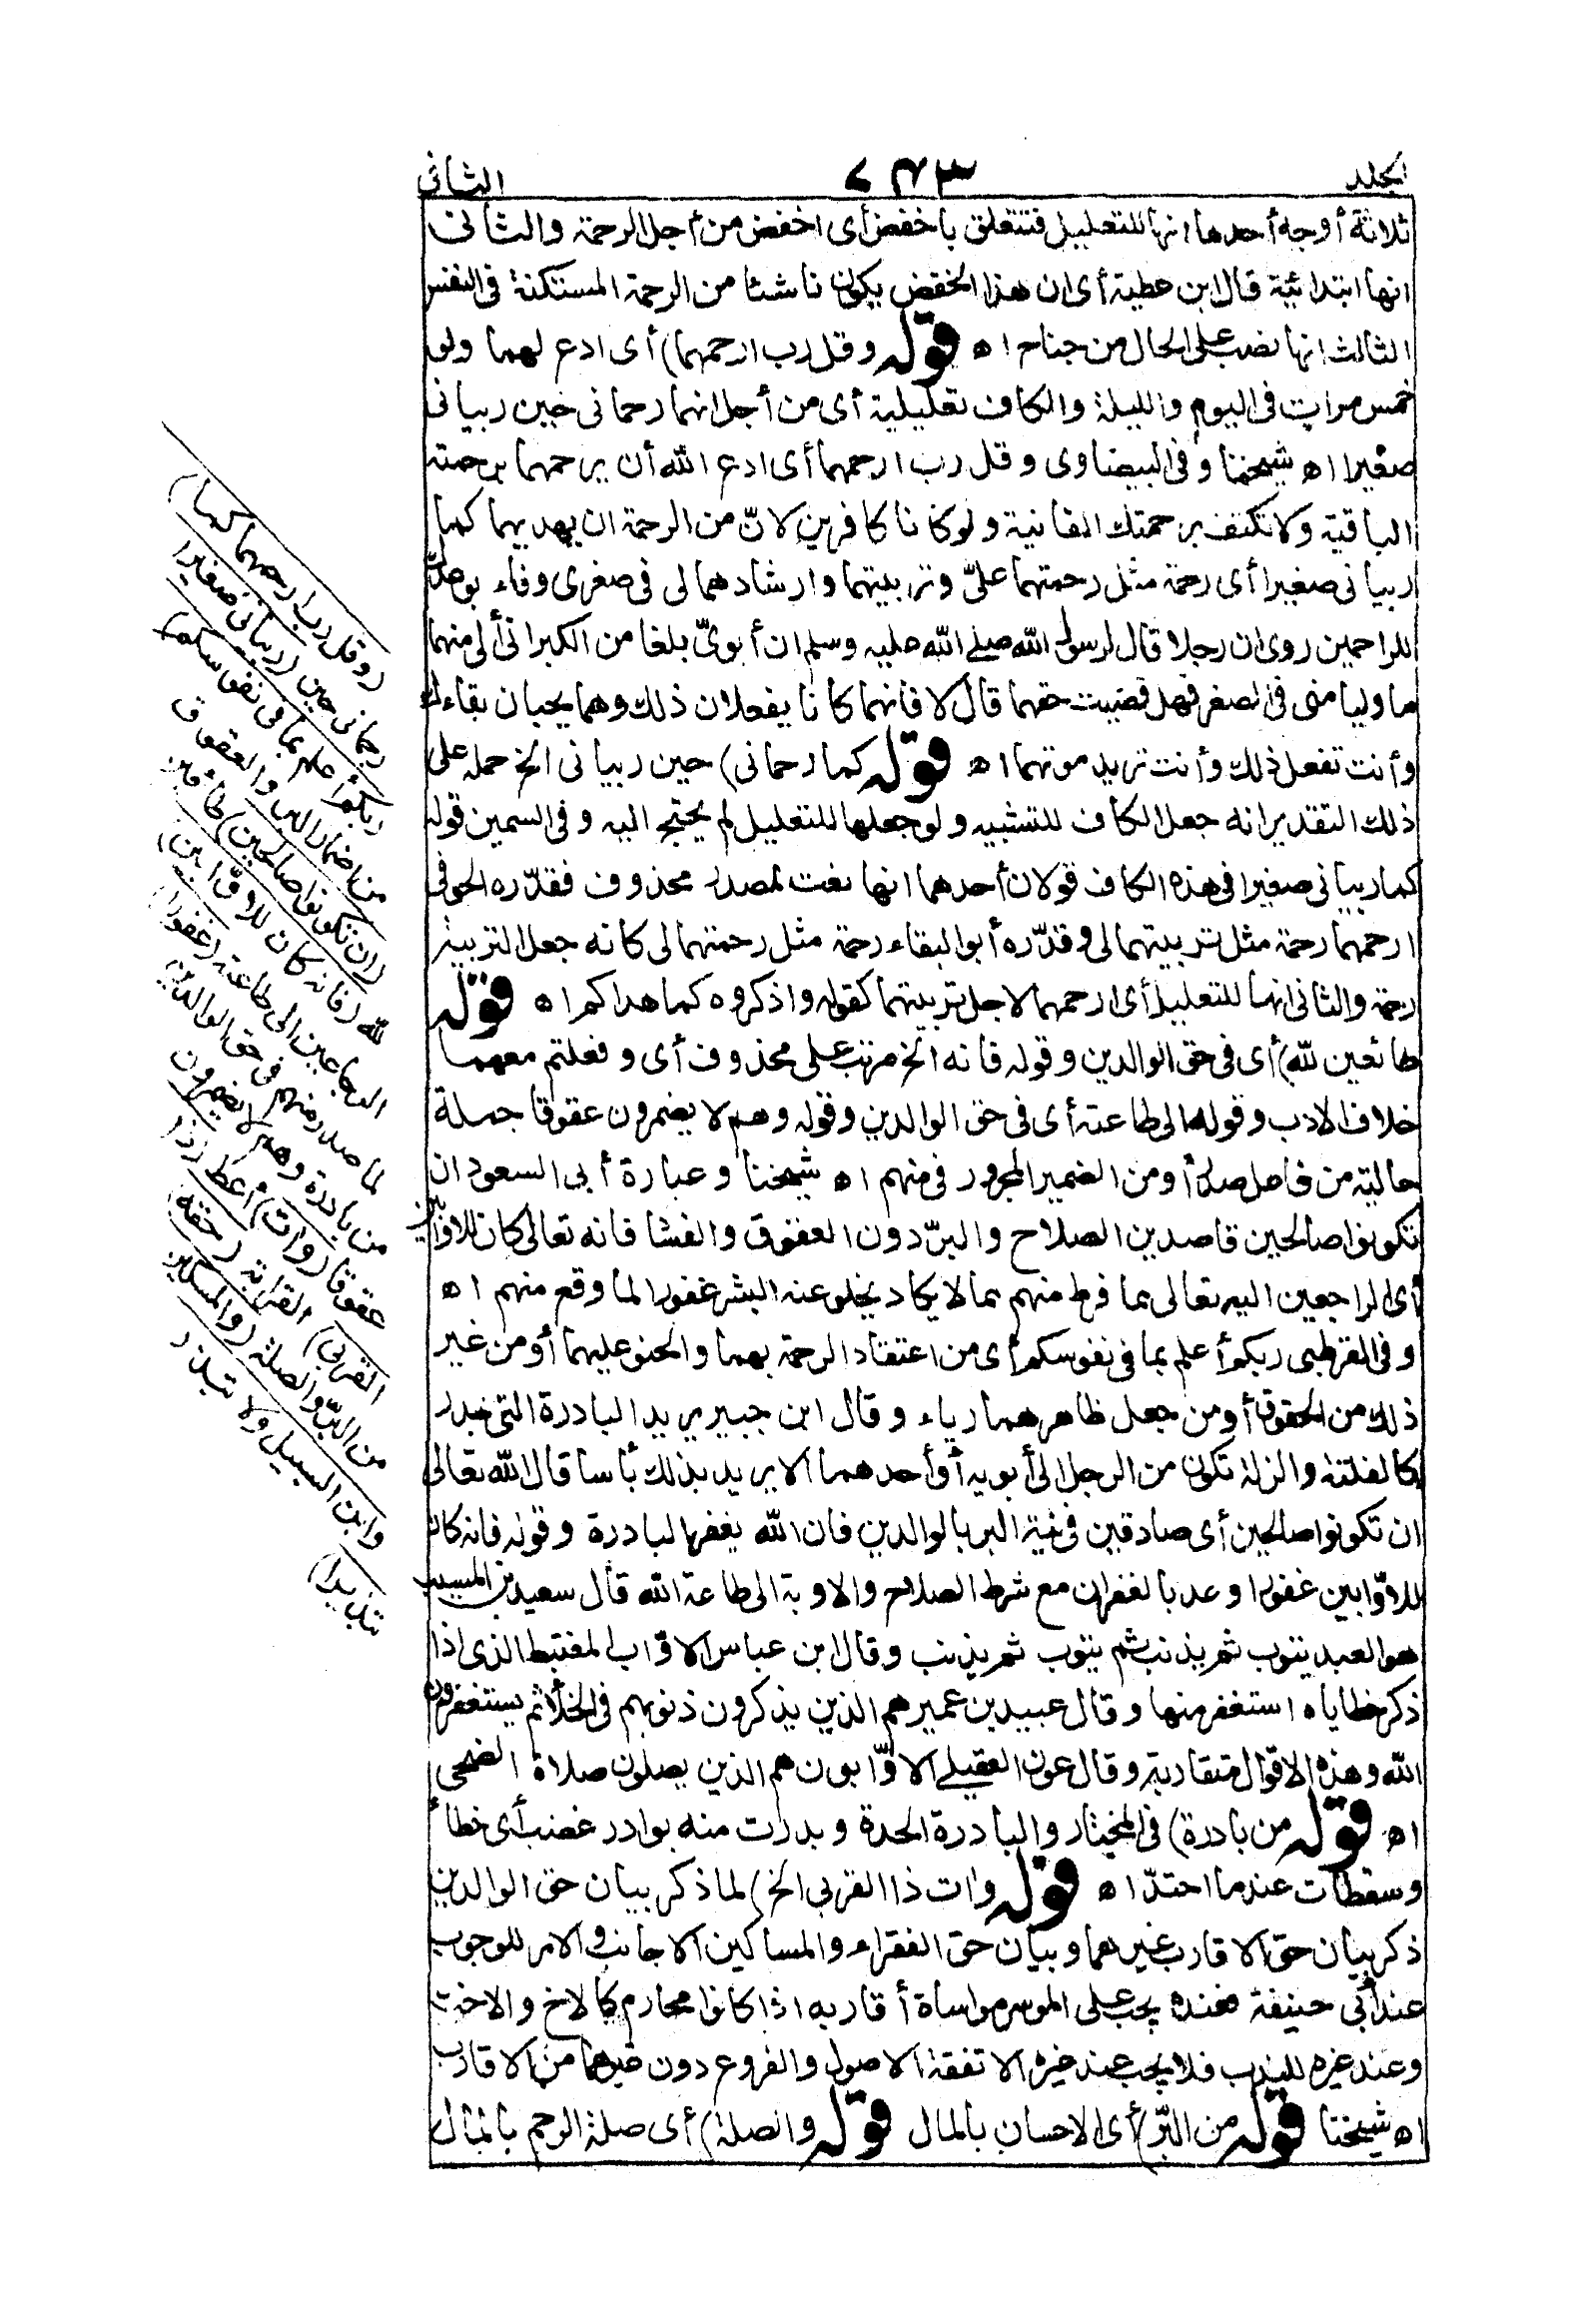 الجلد ٧٤٣ الثانى
ثلاثة أوجه أحدها انها للتعليل فتتعلق باخفض أى اخفض من أجل الرحمة والثانى
انها ابتدائية قال ابن عطية أى ان هذا الخفض يكون ناشئا من الرحمة المستكنة فى النفس
الثالث انها نصب على الحال من جناح اه قوله وقل رب ارحمهما) أى ادع لهما ولو
خمس مرات فى اليوم والليلة والكاف تعليلية أى من أجل انهما رحمانى حين ربيانى
صغيرا اه شيخنا وفى البيضاوى وقل رب ارحمهما أى ادع الله أن يرحمهما برحمته
الباقية ولا تكتف برحمتك الفانية ولو كانا كافرين لانّ من الرحمة ان يهديهما كما
ربيانى صغيرا أى رحمة مثل رحمتهما علىّ وتربيتهما وارشادهما لى فى صغرى وفاء بوعدك
للراحمين روى ان رجلا قال لرسول الله صلى الله عليه وسلم ان أبوىّ بلغا من الكبر انى ألى منهما
ما وليا منى فى الصغر فهل قضيت حقهما قال لا فانهما كانا يفعلان ذلك وهما يحبان بقاءك
وأنت تفعل ذلك وأنت تريد موتهما اه قوله كما رحمانى) حين ربيانى الخ حمله على
ذلك التقدير انه جعل الكاف للتشبيه ولو جعلها للتعليل لم يحتج اليه وفى السمين قوله
كما ربيانى صغيرا فى هذه الكاف قولان أحدهما انها نعت لمصدر محذوف فقدّره الحوفى
ارحمهما رحمة مثل تربيتهما لى وقدّره أبو البقاء رحمة مثل رحمتهما لى كانه جعل التربية
رحمة والثانى انها للتعليل أى ارحمهما لاجل تربيتهما كقوله واذكروه كما هداكم اه قوله
طائعين لله) أى فى حق الوالدين وقوله فانه الخ مرتب على محذوف أى وفعلتم معهما
خلاف الادب وقوله الى طاعته أى فى حق الوالدين وقوله وهم لا يضمرون عقوقا جملة
حالية من فاعل صدر أو من الضمير المجرور فى منهم اه شيخنا وعبارة أبى السعود ان
تكونوا صالحين قاصدين الصلاح والبرّ دون العقوق والفشا فانه تعالى كان للاوّابين
أى الراجعين اليه تعالى بما فرط منهم بما لا يكاد يخلو عنه البشر غفورا لما وقع منهم اه
وفى القرطبى ربكم أعلم بما فى نفوسكم أى من اعتقاد الرحمة بهما والحنو عليهما أو من غير
ذلك من الحقوق أو من جعل ظاهرهما رياء وقال ابن جبير يريد البادرة التى تبدر
كالفلتة والزلة تكون من الرجل الى أبويه أو أحدهما لا يريد بذلك بأسا قال الله تعالى
ان تكونوا صالحين أى صادقين فى نية البر بالوالدين فان الله يغفر البادرة وقوله فانه كان
للاوّابين غفورا وعد بالغفران مع شرط الصلاح والاوبة الى طاعة الله قال سعيد بن المسيب
هو العبد يتوب ثم يذنب ثم يتوب ثم يذنب وقال ابن عباس الاوّاب المغتبط الذى اذا
ذكر خطاياه استغفر منها وقال عبيد بن عمير هم الذين يذكرون ذنوبهم فى الخلاء ثم يستغفرون
الله وهذه الاقوال متقاربة وقال عون العقيلى الاوّابون هم الذين يصلون صلاة الضحى
اه قوله من بادرة) فى المختار والبادرة الحدة وبدرت منه بوادر غضب أى خطأ
وسقطات عندما احتدّ اه قوله وات ذا القربى الخ) لما ذكر بيان حق الوالدين
ذكر بيان حق الاقارب غيرهما وبيان حق الفقراء والمساكين الاجانب والامر للوجوب
عند أبى حنيفة فعنده يجب على الموسر مواساة أقاربه اذا كانوا محارم كالاخ والاخت
وعند غيره للندب فلا يجب عند غيره الا نفقة الاصول والفروع دون غيرهما من الاقارب
اه شيخنا قوله من البرّ) أى الاحسان بالمال قوله والصلة) أى صلة الرحم بالمال
(وقل رب ارحمهما كما)
رحمانى حين (ربيانى صغيرا
ربكم أعلم بما فى نفوسكم)
من اضمار البر والعقوق
(ان تكونوا صالحين) طائعين
لله (فانه كان للاوّابين)
الرجاعين الى طاعته (غفورا)
لما صدر منهم فى حق الوالدين
من بادرة وهم لا يضمرون
عقوقا (وات) أعط (ذا
القربى) القرابة (حقه)
من البرّ والصلة (والمسكين
وابن السبيل ولا تبذر
تبذيرا)